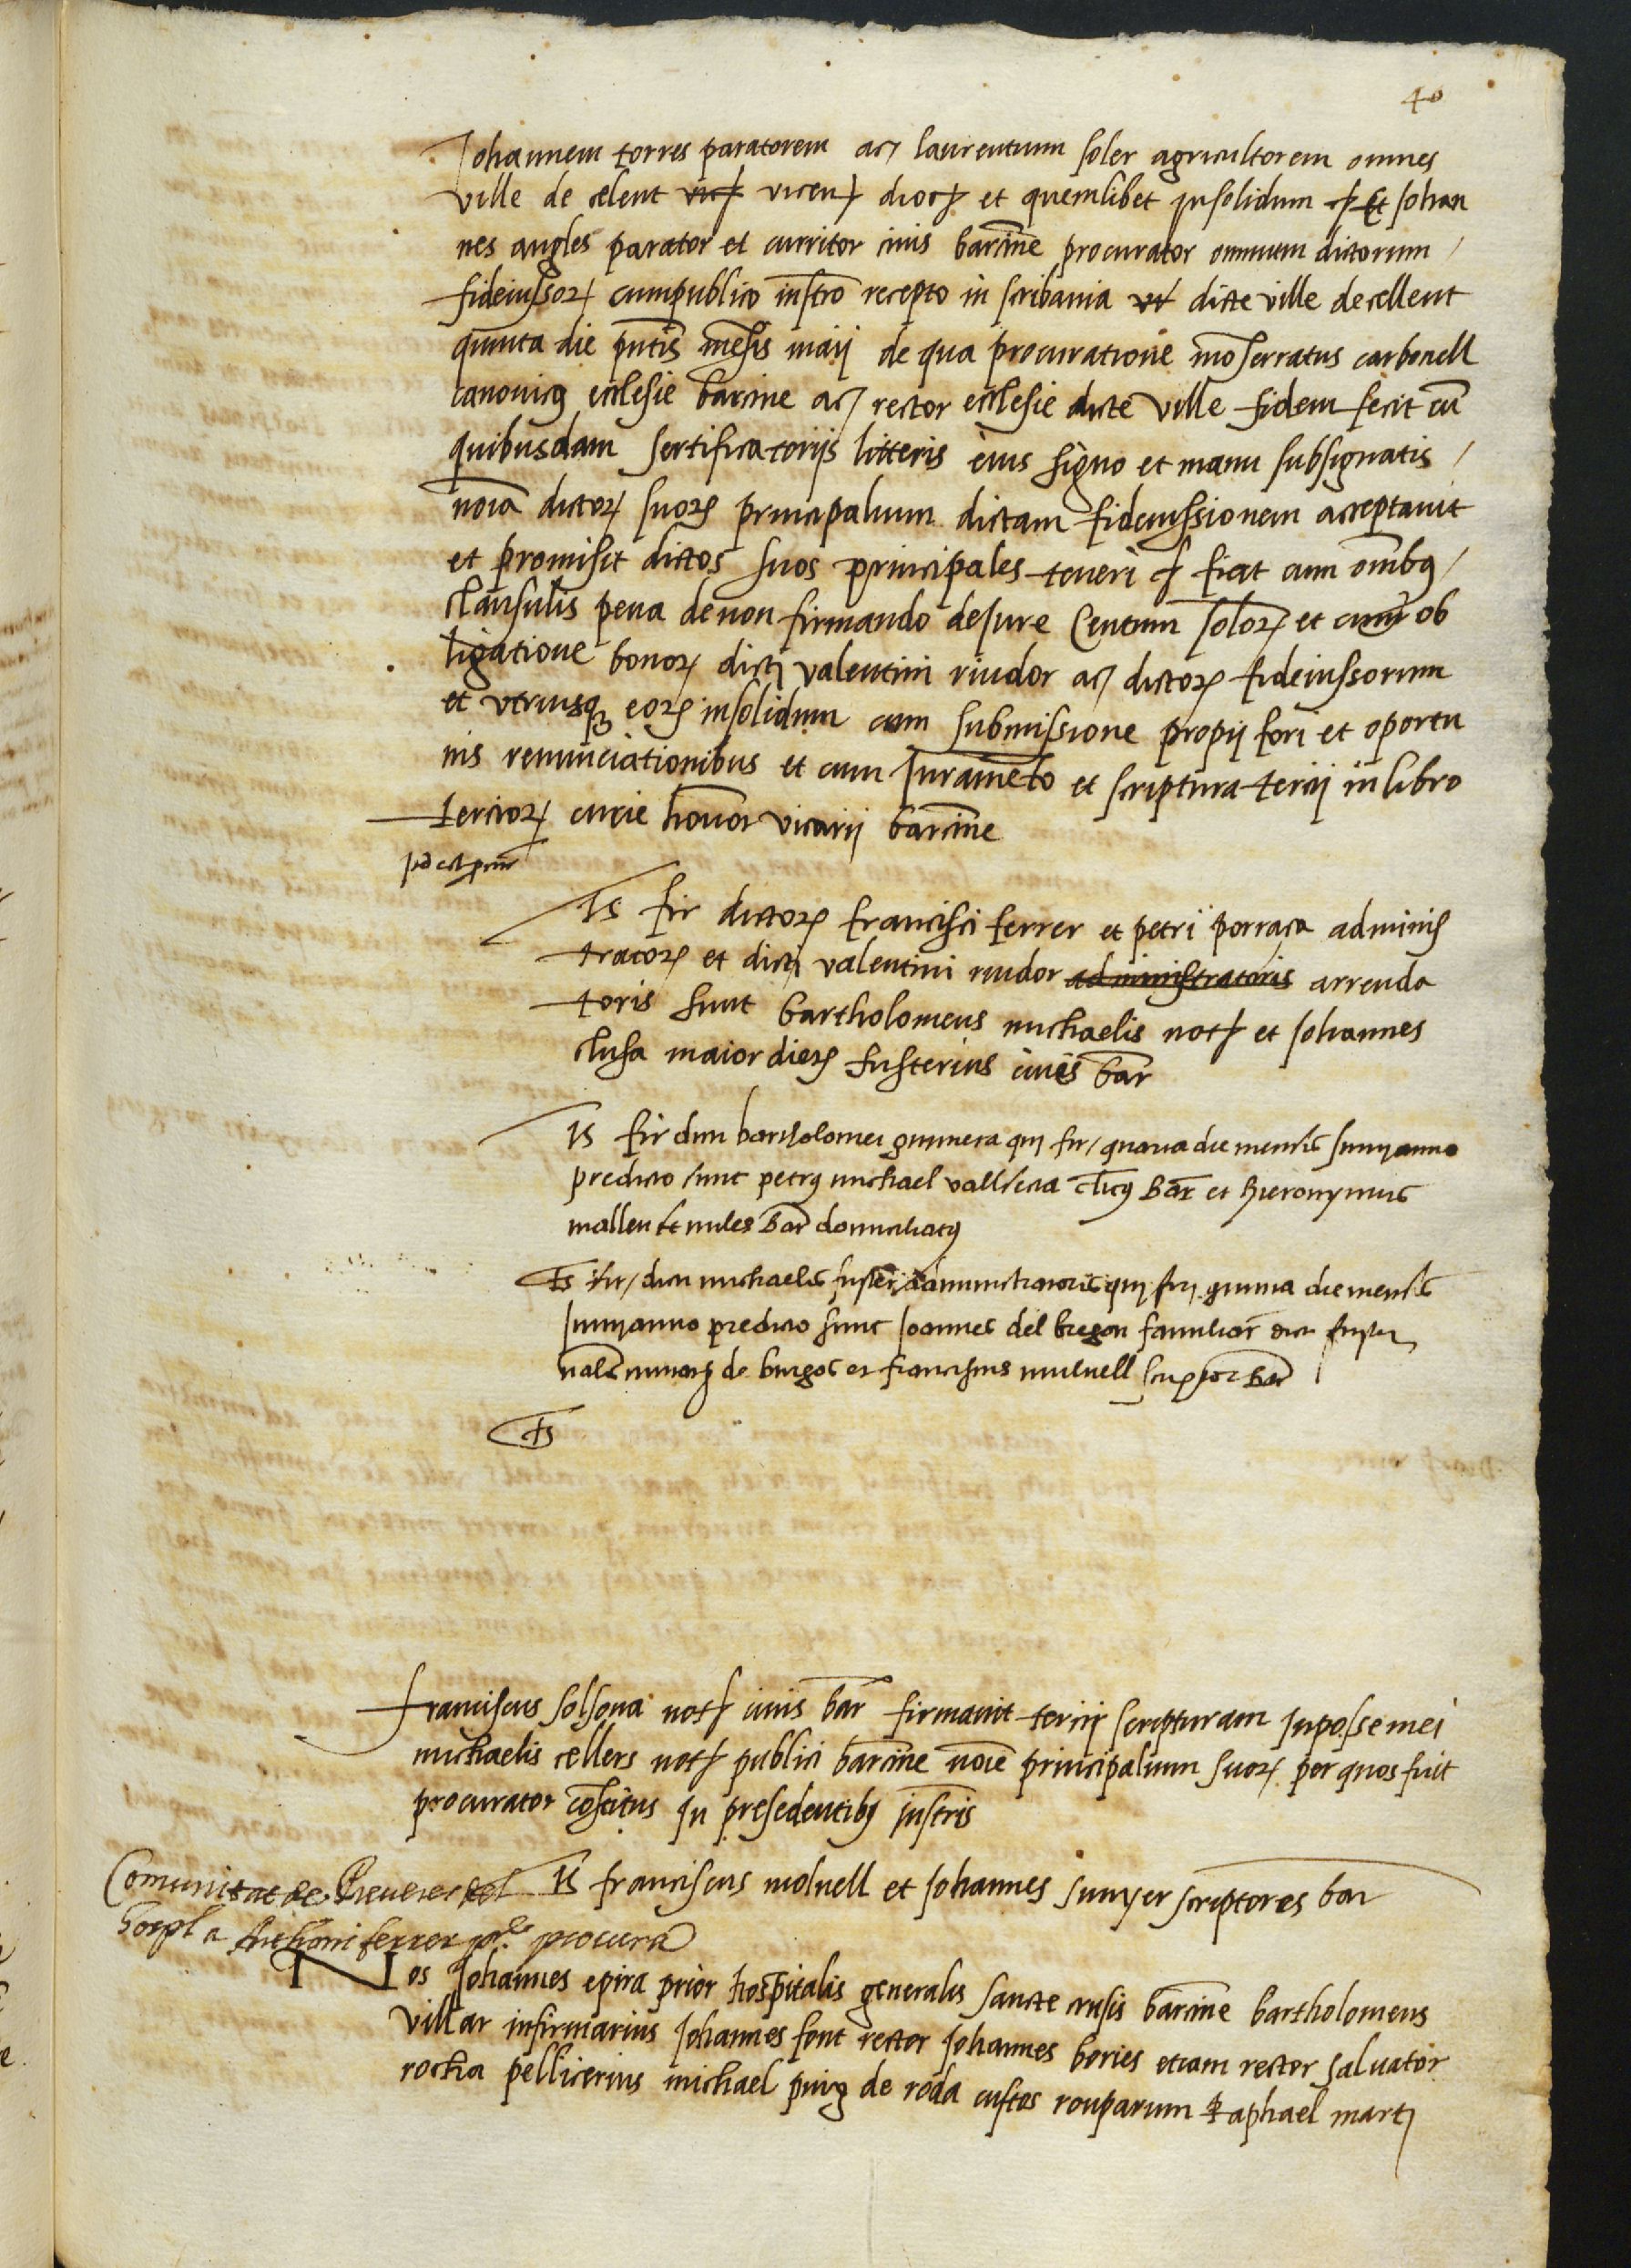 40
Johannem torres paratorem ac laurentium soler agricultorem omnes
ville de celent vicen dioc et quemlibet insolidum Et Johan
nes angles parator et curritor civis barcine procurator omnium dictorum
fideiussor cum publico instro recepto in scribania dicte ville de cellent
quinta die pntis mesis maij de qua procuratione moserratus carbonell
canonicus ecclesie barcine ac rector ecclesie dicte ville fidem fecit cu
quibusdam sertificatoriis litteris eius signo et manu subsignatis
noia dictor suor principalium dictam fideiussionem acceptavit
et promisit dictos suos principales teneri fiat cum omibus
clausulis pena de non firmando de Jure Centum solor et cum ob
ligatione bonor dicti valentini riudor ac dictor fideiussorum
et utriusque eor insolidum cum submissione propij fori et oportu
nis renunciationibus et cum Jurameto et scriptura tercij in libro
tercior curie honor vicarij barcine
Ts fir dictor francisci ferrer et petri porrasa adminis
trator et dicti valentini riudor administratoris arrenda
toris sunt bartholomeus michaelis not et Johannes
clusa maior dier fusterius cives bar
Ts fir dicti bartholomei gimnera qui fir quarta die mensis Junij anno
predicto sunt petrus michael vallseca clicus Bar et hieronymus
mallent miles Bar domiciliatus
Ts fir dicti michaelis fuster administratoris qui fir quinta die mensis
Junij anno predicto sunt Joannes del bregon familiar dicti fuster
de burgos et franciscus mulnell scriptor Bar
Ts
Franciscus solsona not civis bar firmavit tercij scripturam in posse mei
michaelis cellers not publici barcine noie principalium suor per quos fuit
procurator costitus in presedentibus instris
Ts franciscus molnell et Johannes sunyer scriptores bar
Comunitat de Preveres del
hospl a Anthoni ferrer pre procura
Nos Johannes epira prior hospitalis generalis sancte crusis barcine bartholomeus
villar infirmarius Johannes font rector Johannes bories etiam rector salvator
rocha pellicerius michael puig de roda custos rouparum Raphael marti